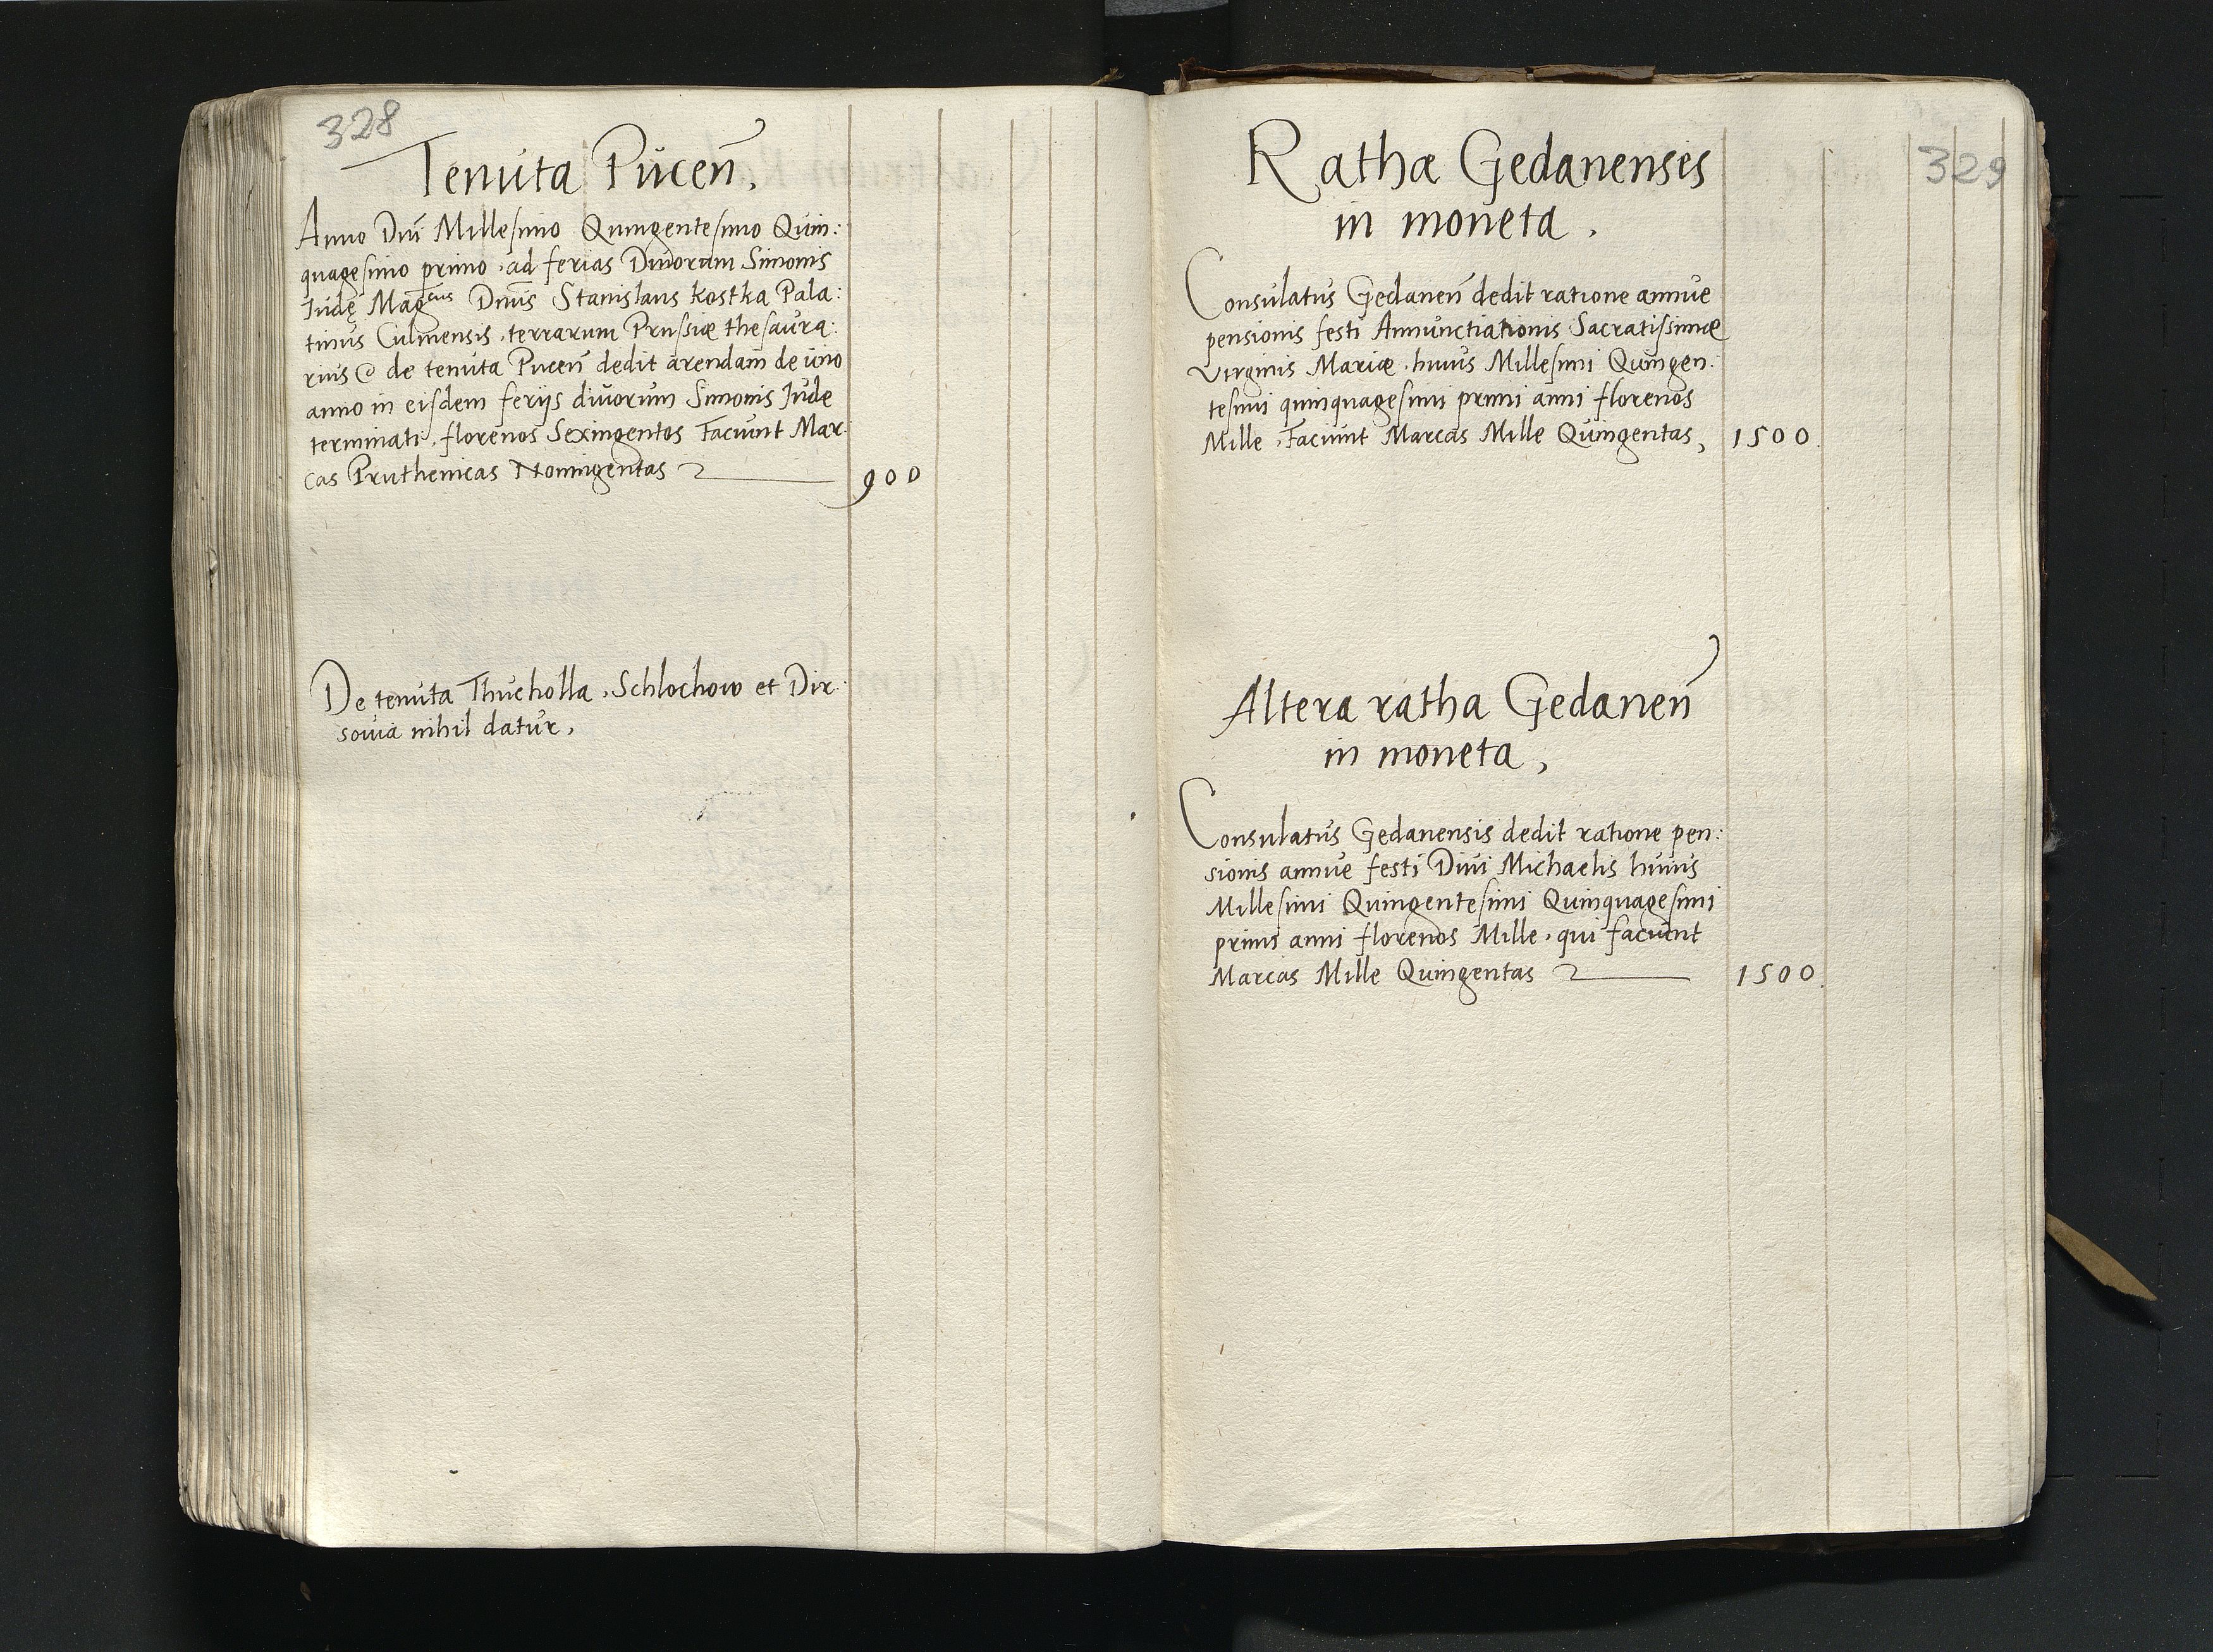 328
Tenuta Pucen̄.
Anno Dnī Millesimo Quingentesimo Quin:
quagesimo primo, ad ferias Diuorum Simonis
Iudę Mag^cus Dnūs Stanislaus Kostka Pala:
tinus Culmensis, terrarum Prussiæ thesaura:
rius de tenuta Pucen̄ dedit arendam de uno
anno in eisdem ferijs diuorum Simonis Iude
terminati, florenos Sexingentos Faciunt Mar:
cas Pruthenicas Noningentas 900
De tenuta Thucholla, Schlochow et Dir:
souia nihil datur,
329
Ratha Gedanensis
in moneta.
Consulatus Gedanen̄ dedit ratione annue
pensionis festi Annunctiationis Sacratissimæ
Virginis Mariæ, huius Millesimi Quingen:
tesimi quinquagesimi primi anni florenos
Mille, Faciunt Marcas Mille Quingentas, 1500.
Altera ratha Gedanen̄
in moneta,
Consulatus Gedanensis dedit ratione pen:
sionis annue festi Diui Michaelis huius
Millesimi Quingentesimi Quinquagesimi
primi anni florenos Mille, qui faciunt
Marcas Mille Quingentas 1500.